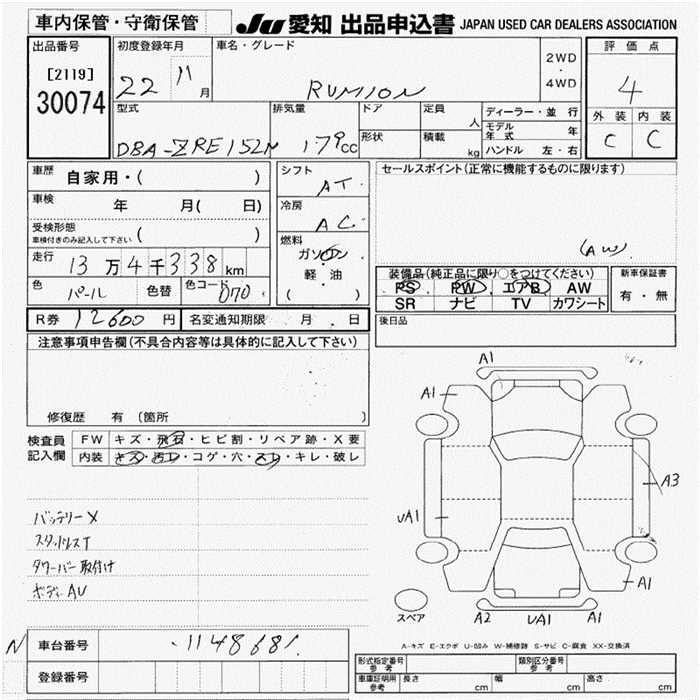 車内保管・守衛保管
JU 愛知 出品申込書 JAPAN USED CAR DEALERS ASSOCIATION
出品番号 初度登録年月 車名・グレード 評価点
[2119] 22 11月 RUMION 2WD ・ 4WD 4
30074
型式 排気量 ドア 定員 人 ディーラー・並行 外装 内装
モデル年式 年
DBA-ZRE152N 1.79cc 形状 積載 kg ハンドル 左・右 C C
車歴 自家用・( ) シフト AT セールスポイント(正常に機能するものに限ります)
車検 年 月( 日) 冷房 AC
受検形態 車検付きのみ記入して下さい ( ) 燃料 ガソリン・軽・油 ( ) (AW)
走行 13万4千338km 装備品(純正品に限り○をつけてください) 新車保証書
PS PW エアB AW 有・無
色 パール 色替 色コード 070 SR ナビ TV カワシート
R券 12600円 名変通知期限 月 日 後日品
注意事項申告欄(不具合内容等は具体的に記入して下さい)
修復歴 有 (箇所
検査員記入欄 FW キズ・飛石・ヒビ割・リペア跡・X要
内装 キズ・汚レ・コゲ・穴・スレ・キレ・破レ
バッテリーX
スタッドレスT
タワーバー取付け
ボディAU
A1
A1
A3
UA1
A1
スペア
A2 UA1 A1
N 車台番号 1148681
登録番号
A-キズ E-エクボ U-凹み W-補修跡 S-サビ C-腐食 XX-交換済
形式指定番号 参考 類別区分番号 参考
車庫証明用 参考 長さ cm 幅 cm 高さ cm